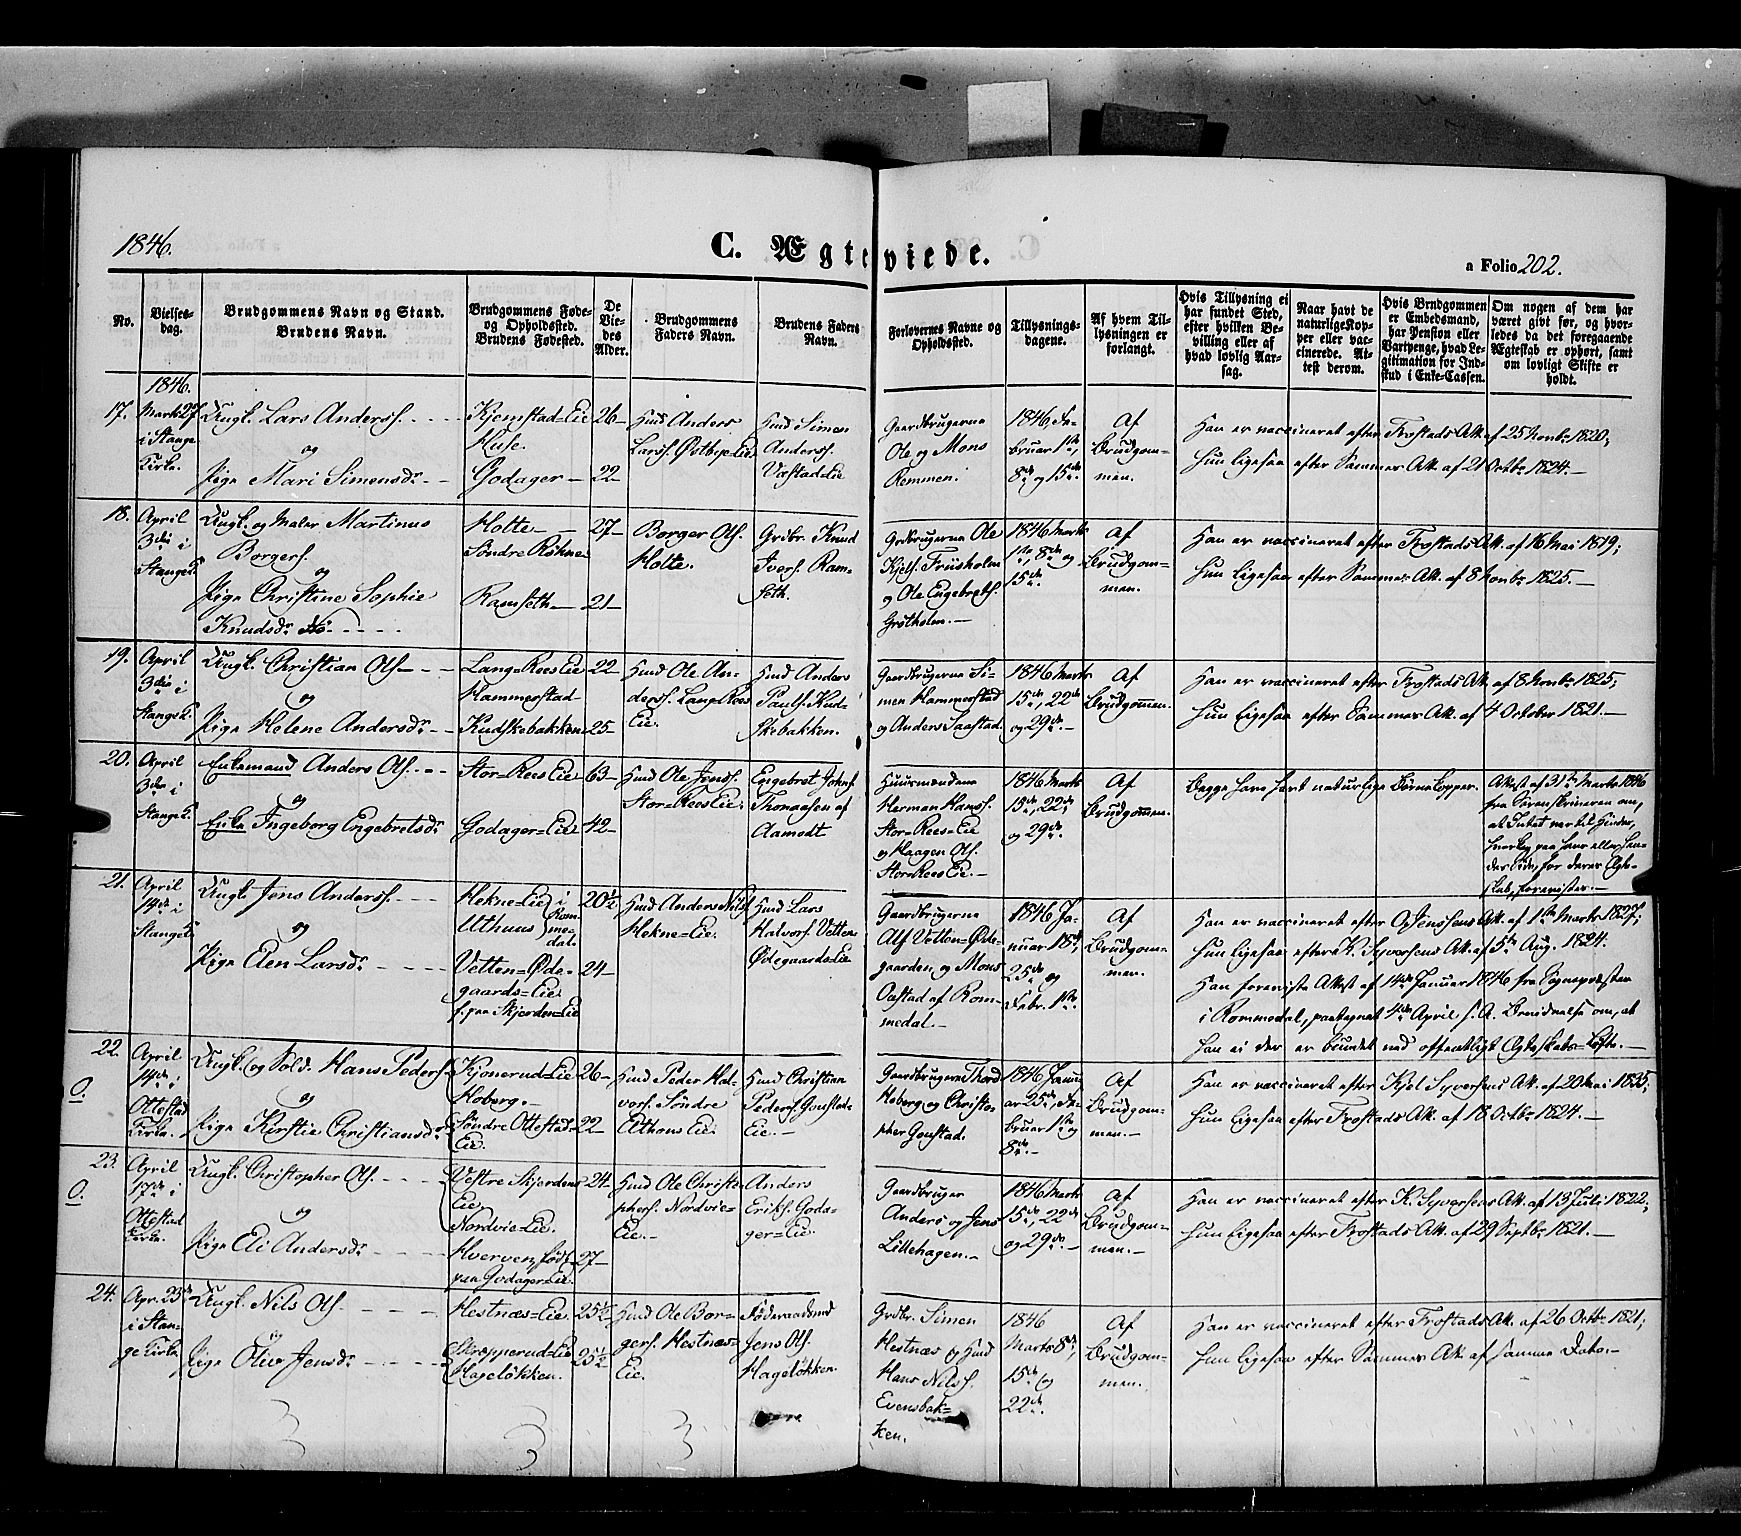 1846.
C. Ægteviede.
a Folio 202.
No.
Vielses-
dag.
Brudgommens Navn og Stand.
Brudens Navn.
Brudgommens Føde-
og Opholdssted.
Brudens Fødested.
De
Vie-
des
Alder.
Brudgommens
Faders Navn.
Brudens Faders
Navn.
Forlovernes Navne og
Opholdssted.
Tillysnings-
dagene.
Af hvem Til-
lysningen er
forlangt.
Hvis Tillysning ei
har fundet Sted,
efter hvilken Be-
villing eller af
hvad lovlig Aar-
sag.
Naar havt de
naturlige Kop-
per eller vac-
cinerede. At-
test derom.
Hvis Brudgommen
er Embedsmand,
har Pension eller
Vartpenge, hvad Le-
gitimation for Ind-
skud i Enke-Cassen.
Om nogen af dem har
været givt før, og hvor-
ledes da det foregaaende
Ægteskab er ophørt, samt
om lovligt Skifte er
holdt.
1846.
17.
Marts 27
i Stange
Kirke.
Ungk. Lars Anders.
og
Pige Mari Simensdr
Kjemstad-Eie
Huse.
Godager
26
22
Huusmd Anders
Lars. Østbye-Eie
Huusmd Simen
Anders.
Vastad-Eie
Gaardbrugerne
Ole og Mons
Remmen.
1846, Fe-
bruar 1ste,
8de og 15de
Af
Brudgom-
men.
Han er vaccineret efter Frostads Att. af 25 Novbr 1820;
Hun ligesaa efter Sammes Att. af 21 Octbr 1824.
18.
April
3die i
Stange K.
Ungk. og Maler Martinus
Borgers.
og
Pige Christine Sophie
Knudsdr
Holte
Søndre Røhne
Ramseth
27
21
Borger Ols.
Holte.
Grdbr. Knud
Ivers. Ram-
seth.
Grdbrugerne Ole
Kjels. Friisholm
og Ole Engebrets.
Grøtholm.
1846 Marts
1ste, 8de og
15de
Af
Brudgom-
men.
Han er vaccineret efter Frostads Att. af 16 Mai 1819;
Hun ligesaa efter Sammes Att. af 8 Novbr 1825.
19.
April
3die i
Stange K.
Ungk. Christian Ols.
og
Pige Helene Andersdr
Lang-Rees Eie
Hammerstad
Kudskebakken
22
25
Huusmd Ole An-
ders. Lang Rees
Eie.
Huusmd Anders
Pauls. Kud-
skebakken.
Gaardbrugerne Si-
men Hammerstad
og Anders Saastad.
1846 Marts
15de, 22
og 29de.
Af
Brudgommen.
Han er vaccineret efter Frostads Att. af 8 Novbr 1825;
Hun ligesaa efter Sammes Att. af 4 October 1821.
20.
April
3die i
Stange K.
Enkemand Anders Ols.
og
Enke Ingeborg Engebretsdr
Stor-Rees Eie
Godager-Eie
63
42
Huusmd Ole Jens.
Stor-Rees Eie.
Engebret Johns.
Thomasen af
Aamodt
Huusmændene
Herman Hans.
Stor-Rees-Eie
og Haagen Ols.
Stor-Rees Eie.
1846 Marts
15de, 22de
og 29de.
Af
Brudgommen.
Begge have havt naturlige Børnekopper.
Attest af 31te Marts 1846
fra Sorenskriveren om,
at Intet var til Hinder,
hverken paa hans eller hen-
des Side, for deres Ægte-
skab, forevistes.
21.
April
14de i
Stange K.
Ungk. Jens Anders.
og
Pige Elen Larsdr
Hekne-Eie i
Uthuus Rom-
medal.
Vetten-Øde-
gaards-Eie
f. paa Skjerden-Eie
20½
24
Huusmd Anders Nils.
Hekne-Eie.
Huusmd Lars
Halvors. Vetten
Ødegaards-Eie
Gaardbrugerne
Alf Vetten-Øde-
gaarden, og Mons
Oustad af Rom-
medal.
1846 Ja-
nuar 18de,
25de og
Febr. 1ste.
Af
Brudgom-
men.
Han er vaccineret efter O. Jenssens Att. af 1ste Marts 1827;
Hun ligesaa efter K. Syversens Att. af 5te Aug. 1824.
Han foreviste Attest af 14de Januar 1846 fra Sognepræsten
i Rommedal, paategnet 4de April s. A. Bevidnelse om, at
han ei der er bundet ved offentligt Ægteskabs-Løfte.
22.
O.
April
14de i
Ottestad
Kirke.
Ungk. og Sold. Hans Peders.
og
Pige Kirstie Christiansdr
Kjonerud-Eie
Hoberg.
Søndre Ottestad-
Eie.
26
22
Huusmd Peder Hal-
vors. Søndre
Althous Eie.
Huusmd Christian
Peders. Gonstad-
Eie.
Gaardbrugerne Thord
Hoberg og Christo-
pher Gonstad.
1846 Janu-
ar 25de, Fe-
bruar 1ste og
8de.
Af
Brudgom-
men.
Han er vaccineret efter Kjel Syversens Att. af 20 Mai 1835;
Hun ligesaa efter Frostads Att. af 18 Octbr 1824.
23.
O.
April
17de i
Ottestad
Kirke.
Ungk. Christopher Ols.
og
Pige Eli Andersdr
Vestre Skjerden
Eie,
Nordvie-Eie.
Hverven, født
paa Godager-Eie.
24
27
Huusmd Ole Christo-
phers. Nordvie-
Eie.
Anders
Eriks. Goda-
ger-Eie.
Gaardbruger
Anders og Jens
Lillehagen.
1846 Marts
15de, 22de
og 29de.
Af
Brudgom-
men.
Han er vaccineret efter K. Syversens Att. af 13 Juli 1822;
Hun ligesaa efter Frostads Att. af 29 Septbr 1821.
24.
Apr. 23de
i Stan-
ge Kirke
Ungk. Nils Ols.
og
Pige Oliv Jensdr
Hestnæs-Eie
Skrepperud-Eie
Hageløkken.
25½
25½
Huusmd Ole Bor-
gers. Hestnæs-
Eie.
Føderaadsmd
Jens Ols.
Hageløkken
Grdbr. Simen
Hestnæs og Huusmd
Hans Nils.
Evensbak-
ken.
1846
Marts 8de,
15de og
22de.
Af
Brudgom-
men.
Han er vaccineret efter Frostads Att. af 26 Octbr 1821;
Hun ligesaa efter Sammes Att. af samme Dato.